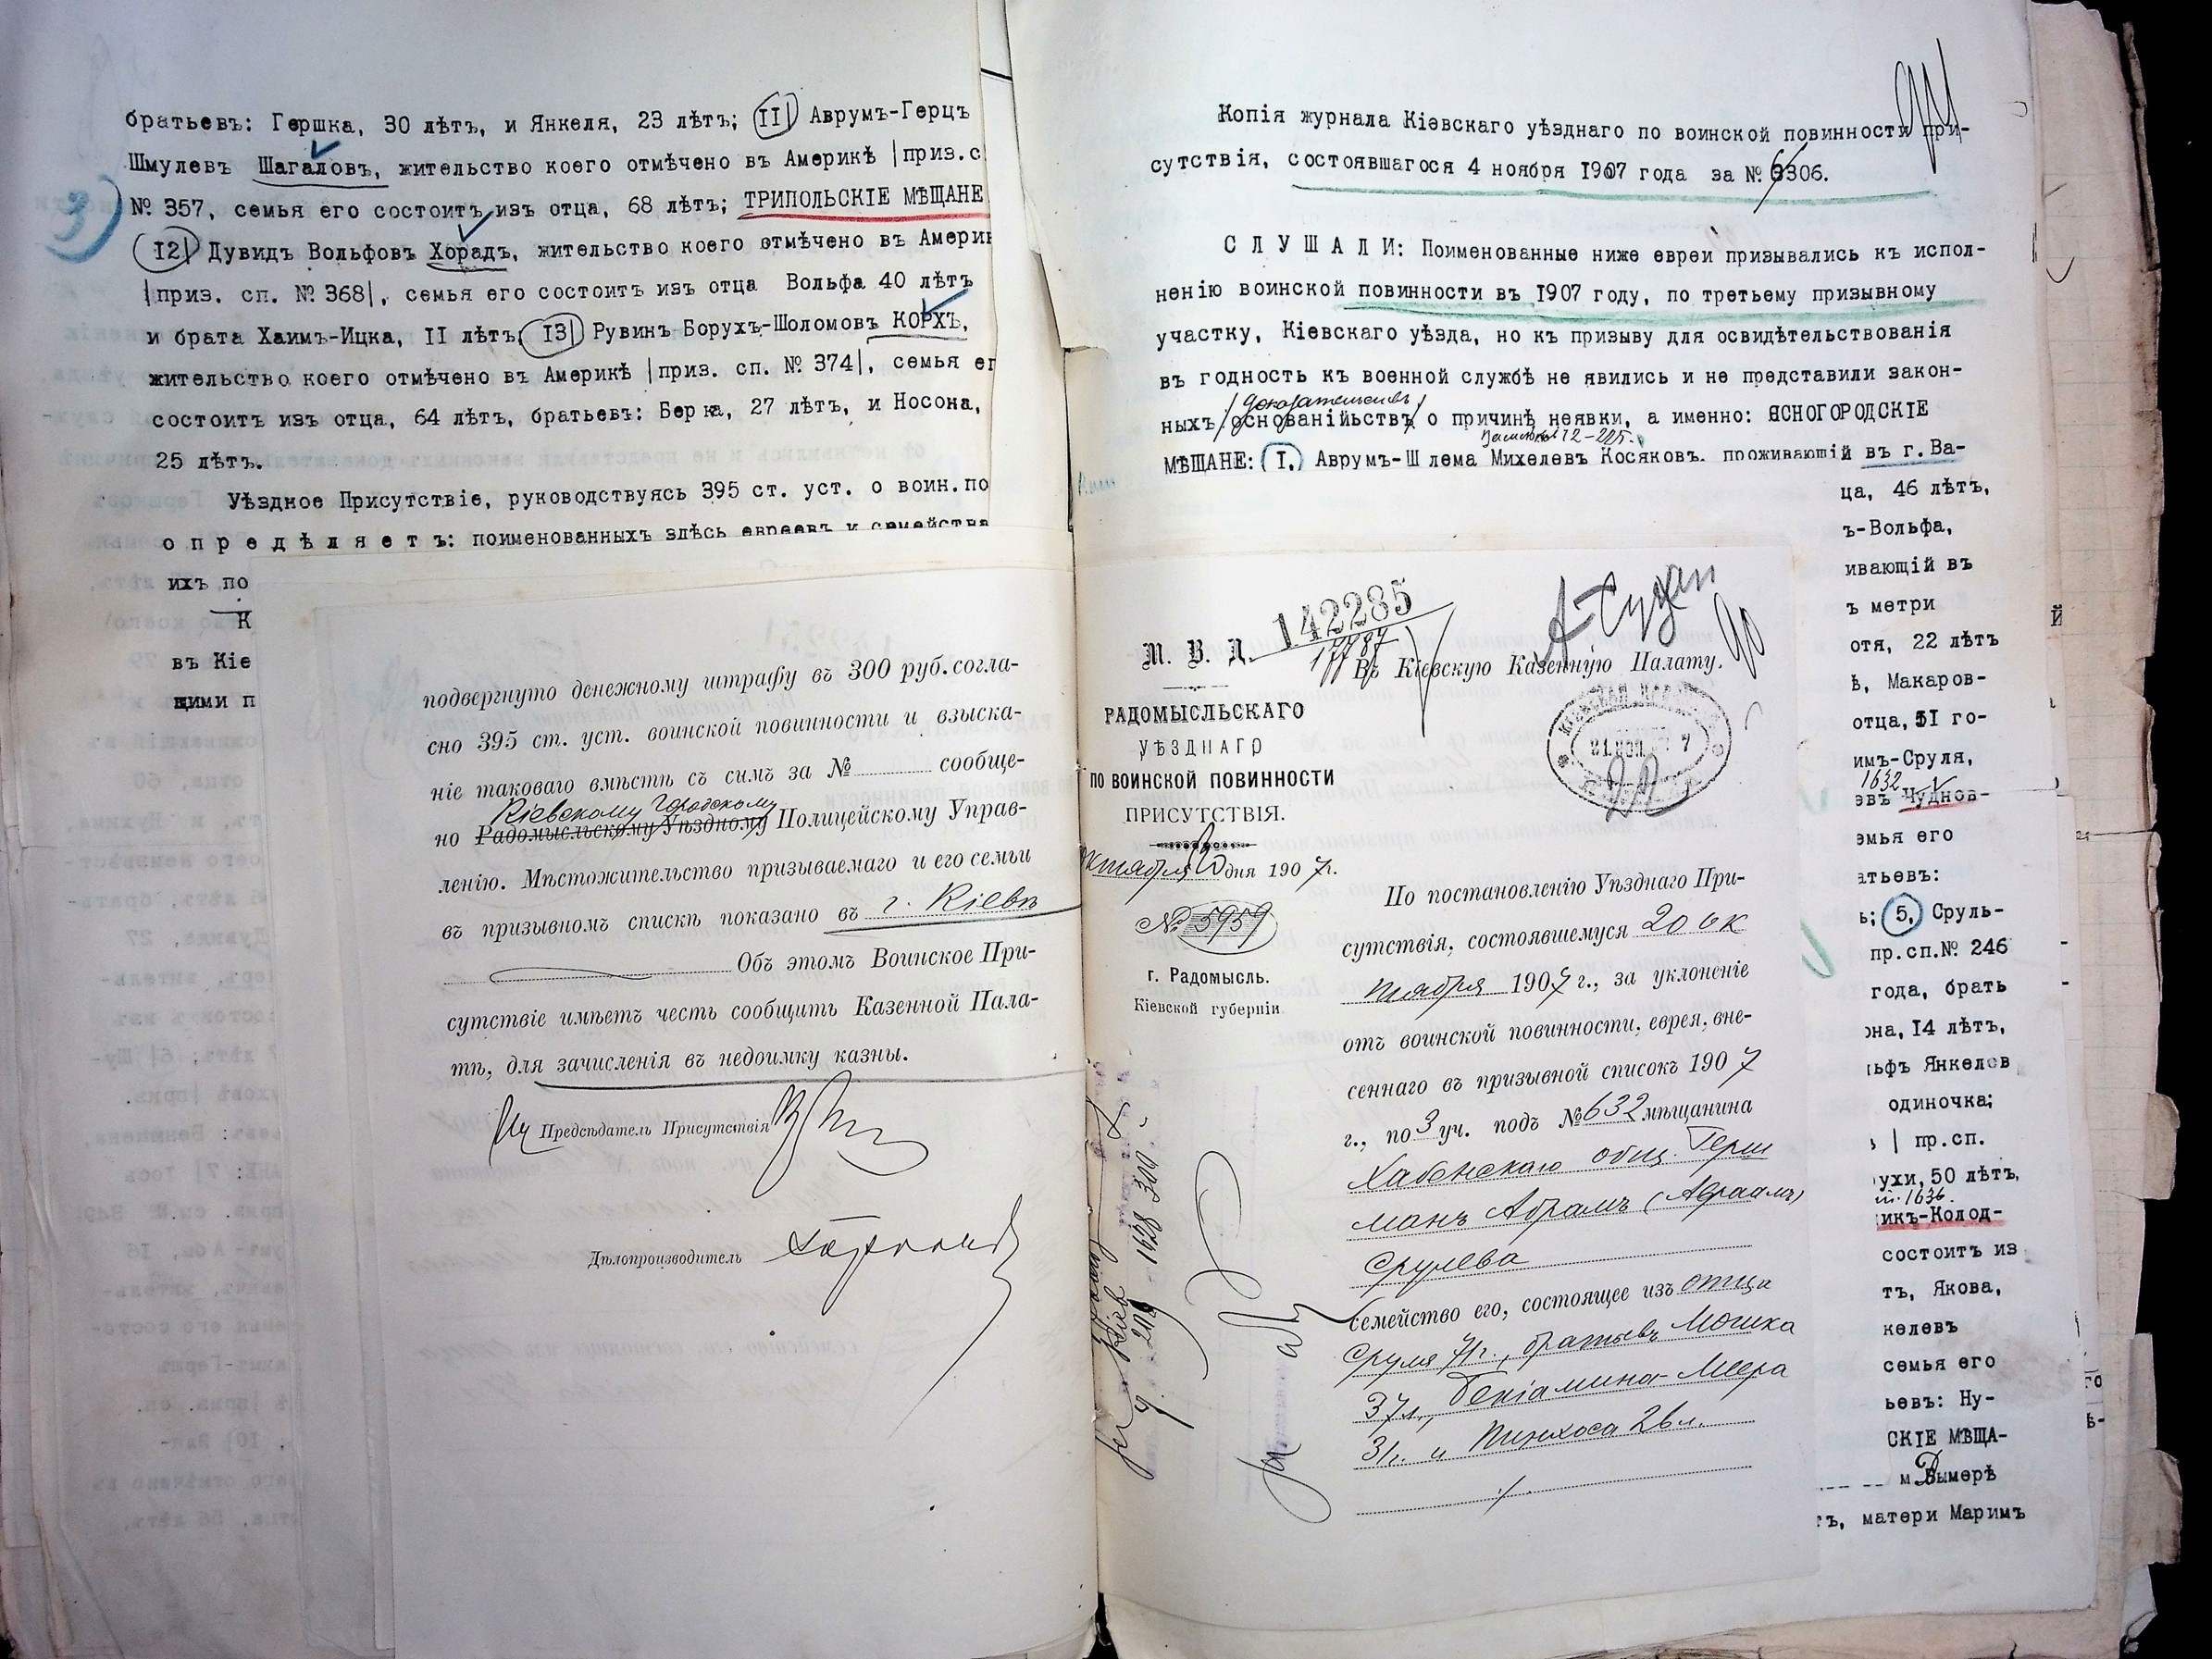 братьевъ: Гершка, 30 лѣтъ, и Янкеля, 23 лѣтъ; II| Аврумъ-Герцъ
Шмулевъ Шагаловъ, жительство коего отмѣчено въ Америкѣ |приз.с
№ 357, семья его состоитъ изъ отца, 68 лѣтъ; ТРИПОЛЬСКІЕ МѢЩАНЕ
I2| Дувидъ Вольфовъ Хорадъ, жительство коего отмѣчено въ Америк
|приз. сп. № 368|, семья его состоитъ изъ отца Вольфа 40 лѣтъ
и брата Хаимъ-Ицка, II лѣтъ; I3| Рувинъ Борухъ-Шоломовъ КОРХЪ,
жительство коего отмѣчено въ Америкѣ |приз. сп. № 374|, семья ег
состоитъ изъ отца, 64 лѣтъ, братьевъ: Берка, 27 лѣтъ, и Носона,
25 лѣтъ.
Уѣздное Присутствіе, руководствуясь 395 ст. уст. о воин.по
о п р е д ѣ л я е т ъ: поименованныхъ здѣсь евреевъ и семейства
ихъ по
К
въ Кіе
щими п
подвергнуто денежному штрафу въ 300 руб.согла-
сно 395 ст. уст. воинской повинности и взыска-
ніе таковаго вмѣстѣ съ симъ за № сообще-
Кіевскому Городскому
но Радомысльскому Уѣздному Полицейскому Управ-
ленію. Мѣстожительство призываемаго и его семьи
въ призывномъ спискѣ показано въ г. Кіевѣ
Объ этомъ Воинское При-
сутствіе имѣетъ честь сообщить Казенной Пала-
тѣ, для зачисленія въ недоимку казны.
Предсѣдатель Присутствія
Дѣлопроизводитель
Копія журнала Кіевскаго уѣзднаго по воинской повинности при-
сутствія, состоявшагося 4 ноября I907 года за № 6306.
С Л У Ш А Л И: Поименованные ниже евреи призывались къ испол-
ненію воинской повинности въ I907 году, по третьему призывному
участку, Кіевскаго уѣзда, но къ призыву для освидѣтельствованія
въ годность къ военной службѣ не явились и не представили закон-
доказательствъ
ныхъ основанійьствъ о причинѣ неявки, а именно: ЯСНОГОРОДСКІЕ
МѢЩАНЕ: I. Аврумъ-Шлема Михелевъ Косяковъ, проживающій въ г.Ва-
ца, 46 лѣтъ,
ъ-Вольфа,
ивающій въ
ъ метри
отя, 22 лѣтъ
ѣ, Макаров-
отца, 5I го-
имъ-Сруля,
1632
эвъ Чуднов-
эмья его
атьевъ:
ь; 5. Сруль-
пр.сп.№ 246
года, брать
она, I4 лѣтъ,
ьфъ Янкелев
одиночка;
| пр.сп.
ухи, 50 лѣтъ,
1636.
икъ-Колод-
состоитъ из
тъ, Якова,
келевъ
семья его
ьевъ: Ну-
СКІЕ МѢЩА-
м Дымерѣ
тъ, матери Марим
142285
М. В. Д.
Въ Кіевскую Казенную Палату.
РАДОМЫСЛЬСКАГО
УѢЗДНАГО
ПО ВОИНСКОЙ ПОВИННОСТИ
ПРИСУТСТВІЯ.
ктября 20 дня 1907г.
№ 5959
г. Радомысль.
Кіевской губерніи.
По постановленію Уѣзднаго При-
сутствія, состоявшемуся 20 ок
тября 1907 г., за уклоненіе
отъ воинской повинности, еврея, вне-
сеннаго въ призывной списокъ 1907
г., по 3 уч. подъ № 632 мѣщанина
Хабенскаго общ. Герш
манъ Абрамъ (Авраамъ)
Срулева
Семейство его, состоящее изъ отца
Сруля 71г., братьевъ Мошка
37л., Беніамина-Меера
31г. и Пинхоса 26л.